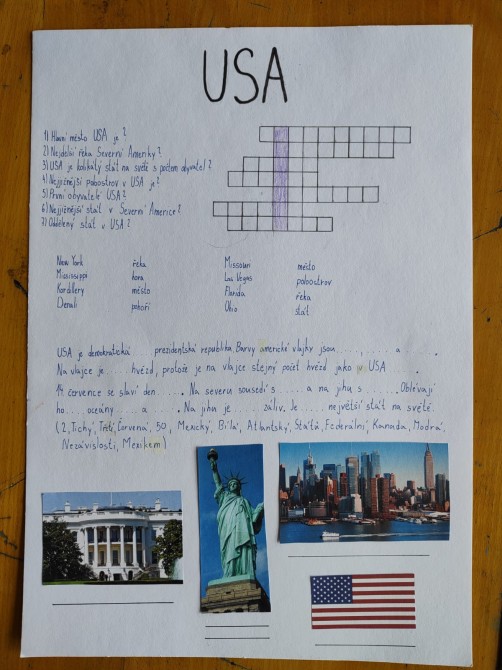 USA
1) Hlavní město USA je?
2) Nejdelší řeka Severní Ameriky?
3) USA je kolikátý stát na světě s počtem obyvatel?
4) Nejjižnější poloostrov v USA je?
5) První obyvatelé USA?
6) Nejjižnější stát v Severní Americe?
7) Oddělený stát v USA?
New York řeka Missouri město
Mississippi hora Las Vegas poloostrov
Kordillery město Florida řeka
Denali pohoří Ohio stát
USA je demokratická prezidentská republika Barvy americké vlajky jsou ....., ...... a ..... .
Na vlajce je ..... hvězd, protože je na vlajce stejný počet hvězd jako v USA .
14. července se slaví den ...... . Na severu sousedí s ...... a na jihu s ...... . Oblévají
ho ... oceány ..... a ..... . Na jihu je ..... záliv. Je ..... největší stát na světě.
(2, Tichý, Třetí, Červená, 50, Mexický, Bílá, Atlantský, Států, Federální, Kanada, Modrá,
Nezávislosti, Mexikem)